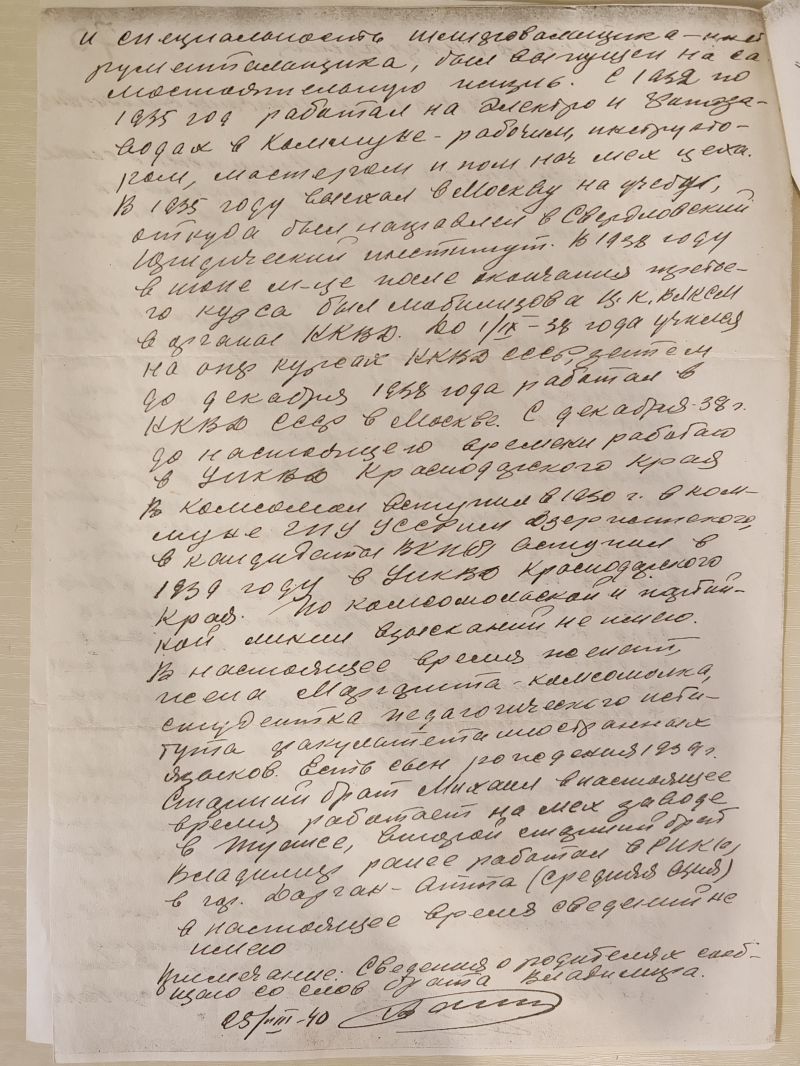 и специальность шлифовальщика-инст
рументальщика, был выпущен на са
мостоятельную жизнь. С 1932 по
1935 год работал на электро и Фотоза-
водах в Коммуне - рабочим, инструкто-
ром, мастером и пом нач мех цеха.
В 1935 году выехал в Москву на учебу,
откуда был направлен в Свердловский
Юридический институт. В 1938 году
в июне м-це после окончания третье-
го курса был мобилизова Ц.К. ВЛКСМ
в органы НКВД. До 1/IX-38 года учился
на опер курсах НКВД СССР, затем
до декабря 1938 года работал в
НКВД СССР в Москве. С декабря 38 г.
до настоящего времени работаю
в УНКВД Краснодарского Края
В комсомол вступил в 1930 г. в ком-
муне ГПУ УССР им Дзержинского,
в кандидаты ВКП(б) вступил в
1939 году в УНКВД Краснодарского
Края. По комсомольской и партий-
ной линии взысканий не имею.
В настоящее время женат,
жена Маргарита - комсомолка,
студентка педагогического исти-
тута факультета иностранных
языков. Есть сын рождения 1939 г.
Старший брат Михаил в настоящее
время работает на мех заводе
в Туапсе, второй старший брат
Владимир ранее работал в РИКе,
в гор. Дарган-Атта (Средняя Азия)
в настоящее время сведений не
имею
Примечание: Сведения о родителях сооб-
щаю со слов брата Владимира.
25/VIII-40